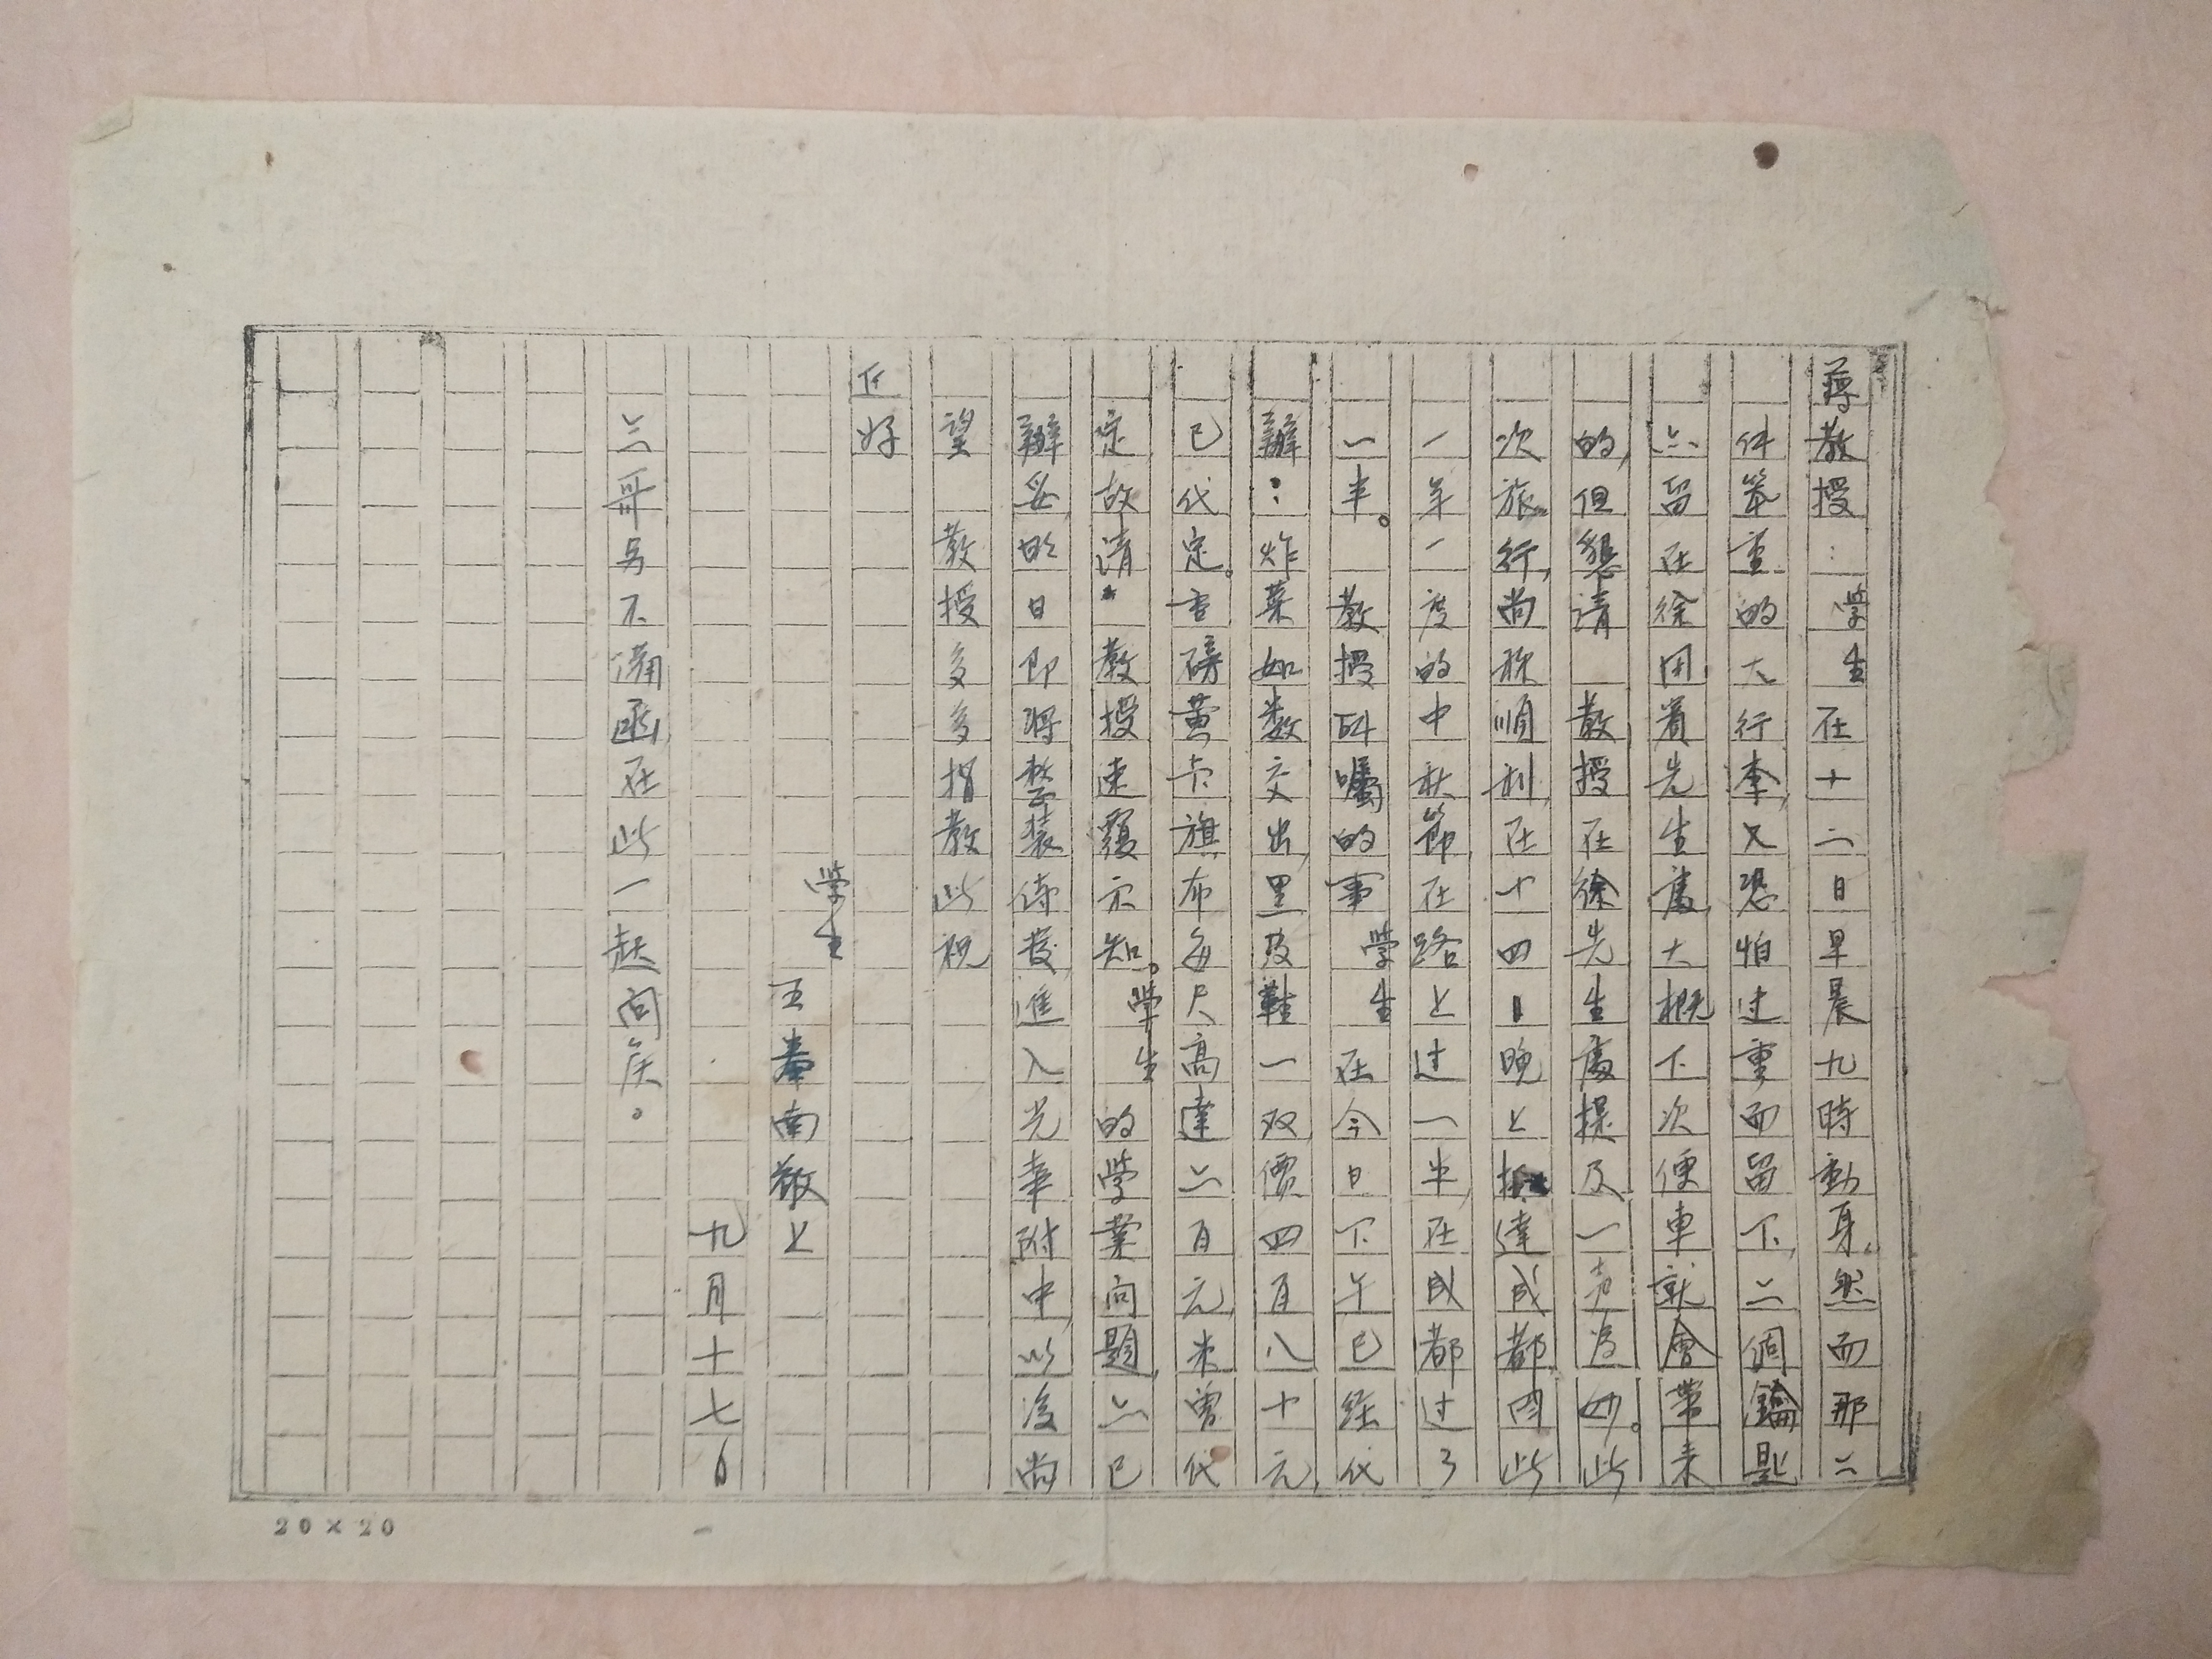 蔣教授：學生在十二日早晨九時動身。然而那二
件笨重的大行李，又恐怕过重而留下，二個鑰匙
亦留在徐用着先生處，大概下次便車就會帶来
的，但懇請　教授在徐先生處提及一声為妙。此
次旅行，尚称順利，在十四日晚上抵達成都，因此
一年一度的中秋節，在路上过一半，在成都过了
一半。　教授所囑的事學生在今日下午已経代
辦：炸菜如数交出，黑皮鞋一双價四百八十元，
已代定。重磅黄卡旗布每尺高達六百元，未曾代
定故請　教授速覆示知。學生的學業问題，亦已
辦妥昨日即將整裝待發進入光華附中，以後尚
望　教授多多指教此祝
近好
學生 五奉南敬上
九月十七日
三哥另不備函，在此一起问候。
20×20